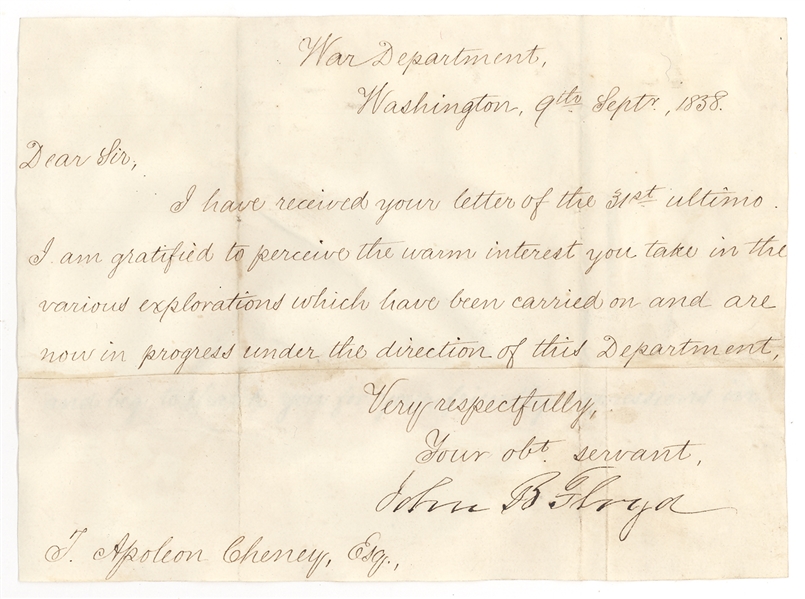 War Department,
Washington, 9th Septr., 1838.
Dear Sir,
I have received your letter of the 31st ultimo.
I am gratified to perceive the warm interest you take in the
various explorations which have been carried on and are
now in progress under the direction of this Department,
Very respectfully,
Your obt. servant,
John B Floyd
T. Apoleon Cheney, Esq.,